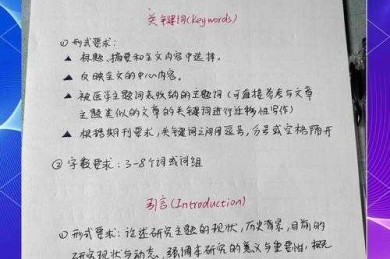 关键词(Keywords)
① 形式要求:
▲ 标题、摘要和全文内容中选择。
▲ 反映全文的中心内容。
▲ 被医学主题词表收纳的主题词(可直接参考与文章
主题类似的文章的关键词进行
▲ 根据期刊要求,关键词之间用逗号,分号或空格隔开
② 字数要求: 3-8个词或词组
引言(Introduction)
① 形式要求: 论述研究主题的现状,历史背景,目前的
研究现状与动态,强调本研究的意义与重要性,概况